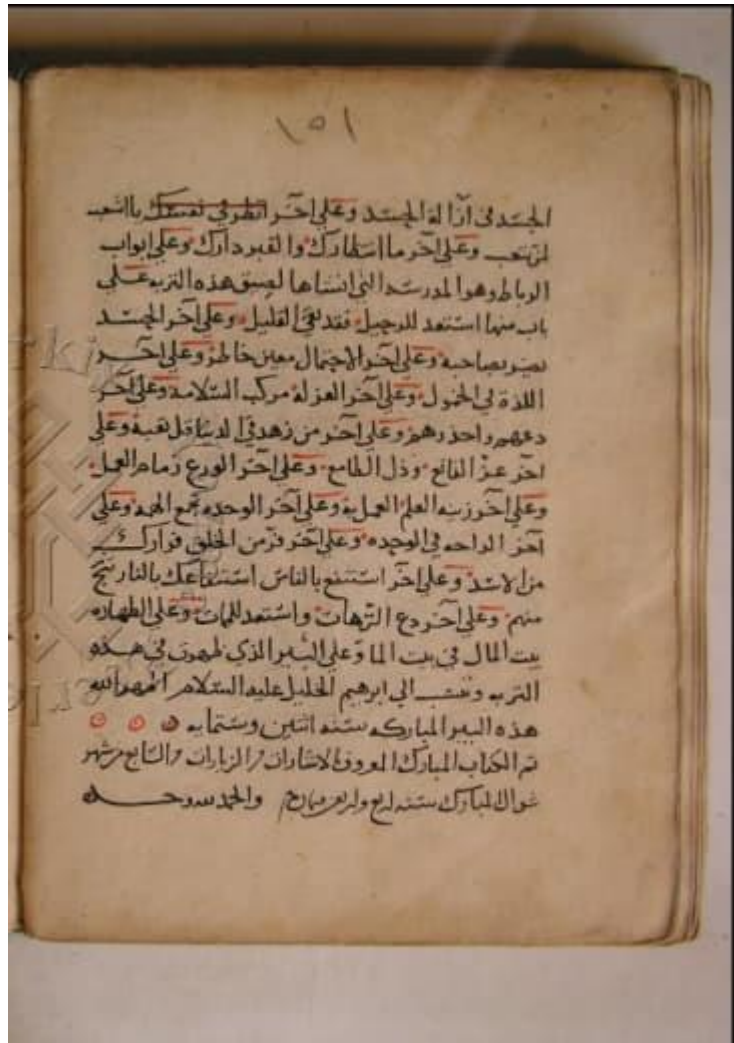 ١٥١
الجسد في ازالة الجسد وعلى اخر انظر في نفسك بالتعب
لمن تتعب وعلى اخر ما استظارك والقبر دارك وعلى ابواب
الرباط وهو المدرسه التي انشاها لصيق هذه التربه على
باب منها استعد للرحيل فقد بقي القليل وعلى اخر الجسد
يضر بصاحبه وعلى اخر الاحتمال معين خاطر وعلى اخر
اللذة في الخمول وعلى اخر العزلة مركب السلامة وعلى اخر
دعهم واحذرهم وعلى اخر من زهد في الدنيا قل تعبه وعلى
اخر عز القانع وذل الطامع وعلى اخر الورع زمام العمل
وعلى اخر زينه العلم العمل به وعلى اخر الوحده تجمع الهمه وعلى
اخر الراحه في الوحده وعلى اخر فر من الخلق فرارك
من الاسد وعلى اخر استنفع بالناس استنفاعك بالنار تنج
منهم وعلى اخر دع الترهات واستعد للممات وعلى الطهاره
بيت المال في بيت الما وعلى البير الذي ظهرت في هذه
التربه وتنسب الي ابرهيم الخليل عليه السلام اظهر الله
هذه البير المباركه سنه اثنين وستمايه
تم الكتاب المبارك المعروف بالاشارات في الزيارات في السابع من شهر
شوال المبارك سنه اربع واربعين وثمان والحمد لله وحده